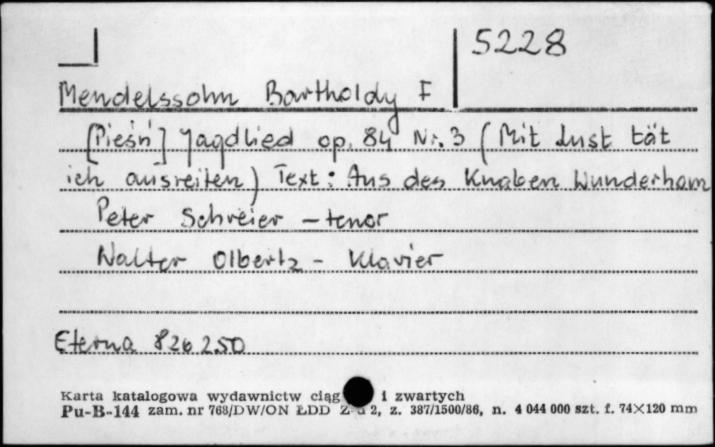 5228
Mendelssohn Bartholdy F
[Pieśń] Jagdlied op. 84 Nr. 3 (Mit Lust tät
ich ausreiten) Text: Aus des Knaben Wunderhorn
Peter Schreier - tenor
Walter Olbertz - Klavier
Eterna 826 250
Karta katalogowa wydawnictw ciąg i zwartych
Pu-B-144 zam. nr 768/DW/ON ŁDD 2, z. 387/1500/86, n. 4 044 000 szt. f. 74×120 mm